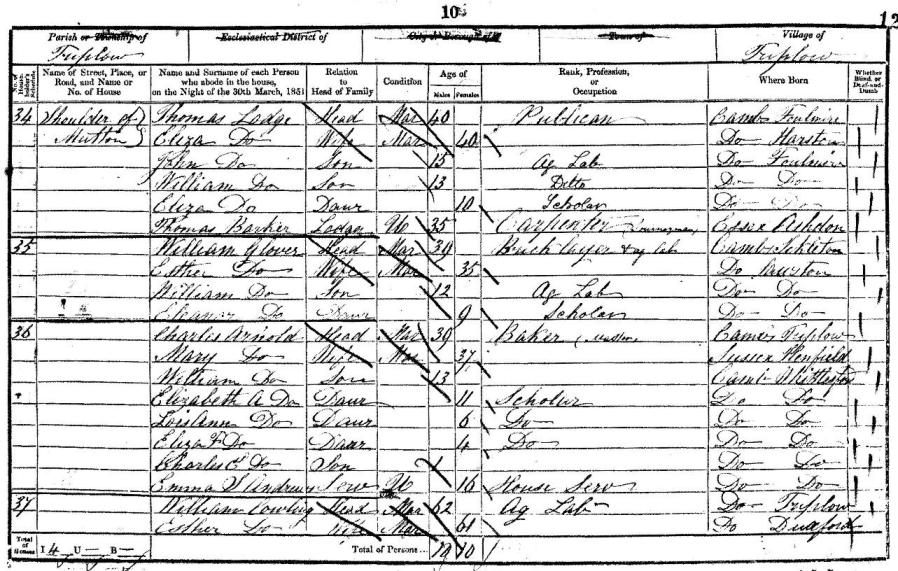 10
12
Parish or Township of Triplow
Ecclesiastical District of
City or Borough of
Town of
Village of Triplow
No. of House-holder's Schedule
Name of Street, Place, or Road, and Name or No. of House
Name and Surname of each Person who abode in the house, on the Night of the 30th March, 1851
Relation to Head of Family
Condition
Age of
Males Females
Rank, Profession, or Occupation
Where Born
Whether Blind, or Deaf-and-Dumb
34 Shoulder of Thomas Lodge Head Mar 40 Publican Camb Foulmire
Mutton Eliza Do Wife Mar 40 Do Harston
John Do Son 15 Ag Lab Do Foulmire
William Do Son 13 Ditto Do Do
Eliza Do Daur 10 Scholar Do Do
Thomas Barker Lodger U 35 Carpenter Journeyman Essex Ashdon
35 William Glover Head Mar 39 Bricklayer & ag lab Camb Ickleton
Esther Do Wife Mar 35 Do Sawston
William Do Son 12 Ag Lab Do Do
Eleanor Do Daur 9 Scholar Do Do
36 Charles Arnold Head Mar 39 Baker Camb Triplow
Mary Do Wife Mar 37 Sussex Henfield
William Do Son 13 Camb Whittlesford
Elizabeth A Do Daur 11 Scholar Do Do
Lois Ann Do Daur 6 Do Do Do
Eliza F Do Daur 4 Do Do Do
Charles E Do Son 1 Do Do
Emma S Andrews Serv U 16 House Serv Do Do
37 William Cowling Head Mar 62 Ag Lab Do Triplow
Esther Do Wife Mar 61 Do Duxford
Total of Houses I 4 U — B — Total of Persons 19 10